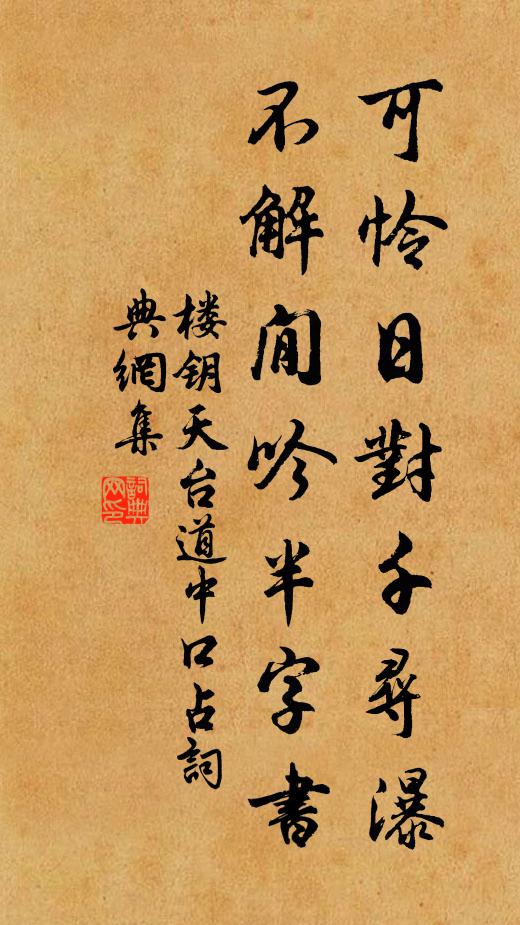 可怜日對千尋瀑
不解閒吟半字書
楼钥天台道中口占詞
典網集
詞典
网印